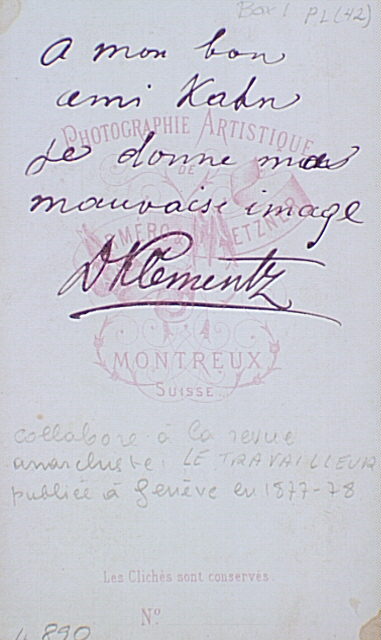 Box 1 PL(42)
A mon bon
ami Kahn
PHOTOGRAPHIE ARTISTIQUE
DE
Je donne ma
mauvaise image
METZNER
DKlementz
MONTREUX
SUISSE
collabore à la revue
anarchiste: LE TRAVAILLEUR
publiée à Genève en 1877-78
Les Clichés sont conservés.
Nº
890